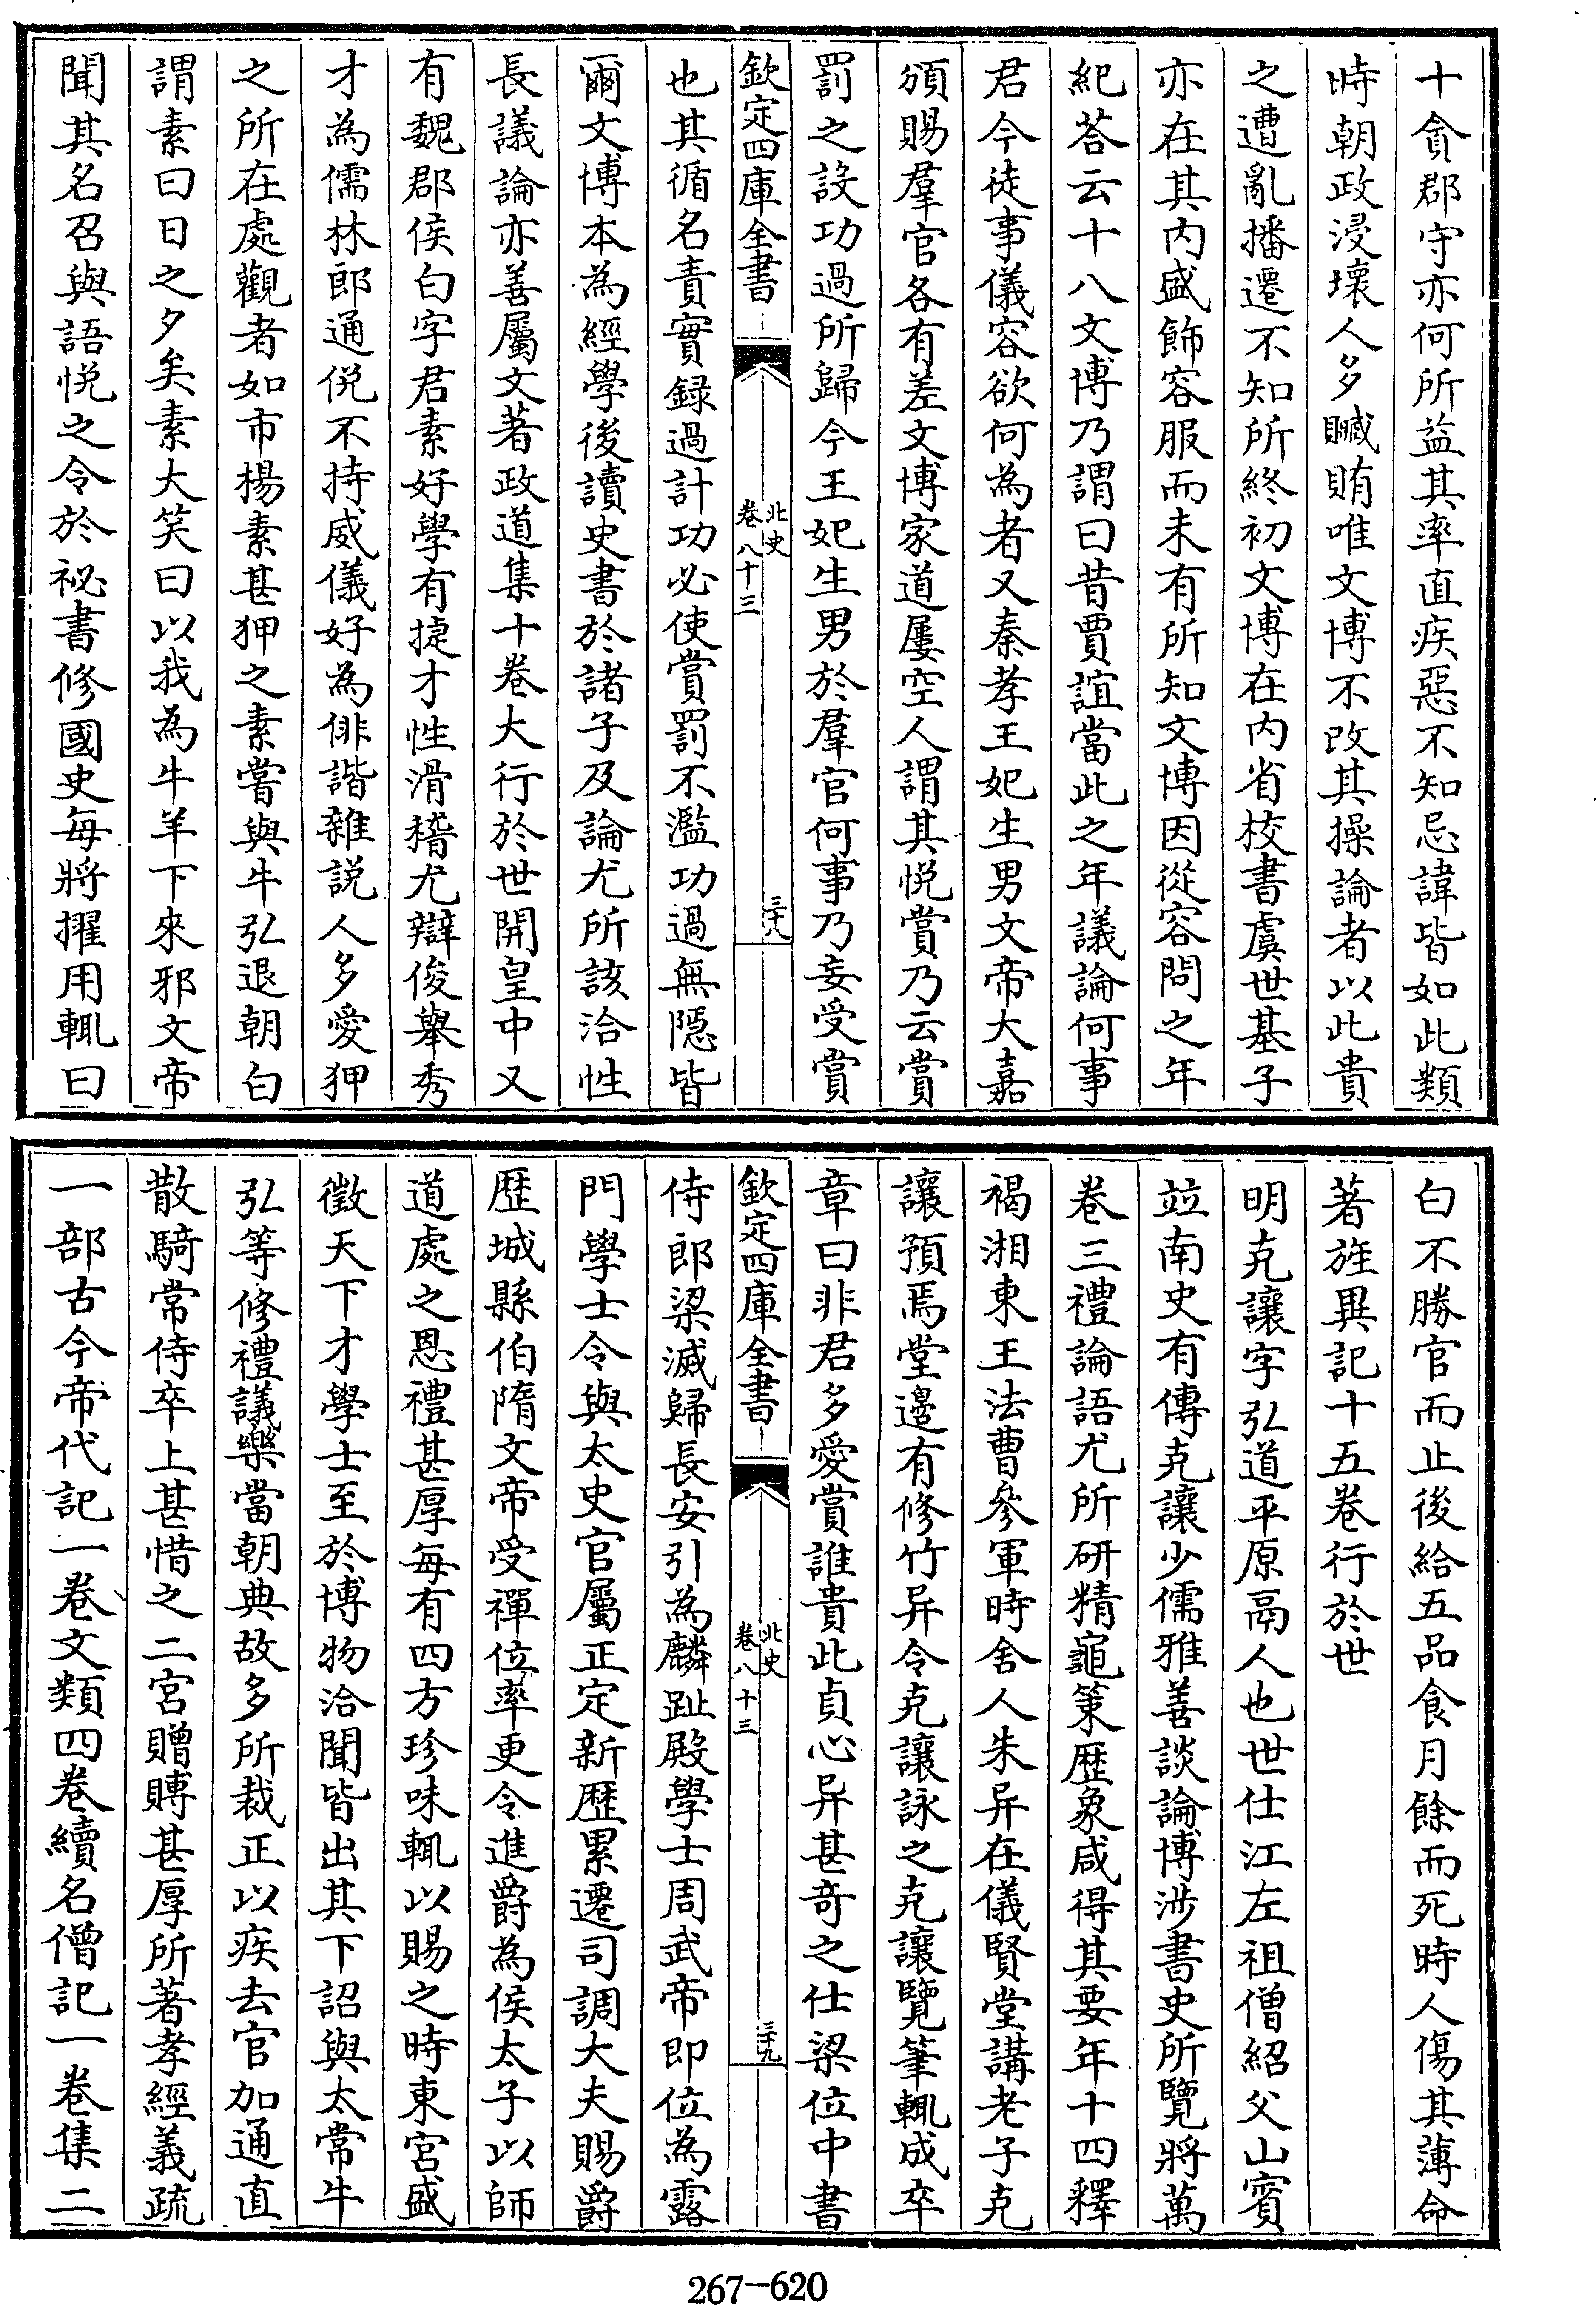 十貪郡守亦何所益其率直疾惡不知忌諱皆如此類
時朝政浸壞人多贓賄唯文博不改其操論者以此貴
之遭亂播遷不知所終初文博在内省校書虞世基子
亦在其内盛飾容服而未有所知文博因從容問之年
紀荅云十八文博乃謂曰昔賈誼當此之年議論何事
君今徒事儀容欲何為者又秦孝王妃生男文帝大嘉
頒賜羣官各有差文博家道屢空人謂其悦賞乃云賞
罰之設功過所歸今王妃生男於羣官何事乃妄受賞
欽定四庫全書
北史
卷八十三
三十八
也其循名責實録過計功必使賞罰不濫功過無隱皆
爾文博本為經學後讀史書於諸子及論尤所該洽性
長議論亦善屬文著政道集十卷大行於世開皇中又
有魏郡侯白字君素好學有捷才性滑稽尤辯俊舉秀
才為儒林郎通侻不持威儀好為俳諧雜説人多愛狎
之所在處觀者如市楊素甚狎之素嘗與牛弘退朝白
謂素曰日之夕矣素大笑曰以我為牛羊下來邪文帝
聞其名召與語悦之令於祕書修國史每將擢用輒曰
白不勝官而止後給五品食月餘而死時人傷其薄命
著旌異記十五卷行於世
明克讓字弘道平原鬲人也世仕江左祖僧紹父山賓
竝南史有傳克讓少儒雅善談論博涉書史所覽將萬
卷三禮論語尤所研精龜策歴象咸得其要年十四釋
褐湘東王法曹參軍時舍人朱异在儀賢堂講老子克
讓預焉堂邊有修竹异令克讓詠之克讓覽筆輒成卒
章曰非君多愛賞誰貴此貞心异甚奇之仕梁位中書
欽定四庫全書
北史
卷八十三
三十九
侍郎梁滅歸長安引為麟趾殿學士周武帝即位為露
門學士令與太史官屬正定新歴累遷司調大夫賜爵
歴城縣伯隋文帝受禪位率更令進爵為侯太子以師
道處之恩禮甚厚每有四方珍味輒以賜之時東宮盛
徵天下才學士至於博物洽聞皆出其下詔與太常牛
弘等修禮議樂當朝典故多所裁正以疾去官加通直
散騎常侍卒上甚惜之二宮贈賻甚厚所著孝經義疏
一部古今帝代記一卷文類四卷續名僧記一卷集二
267-620